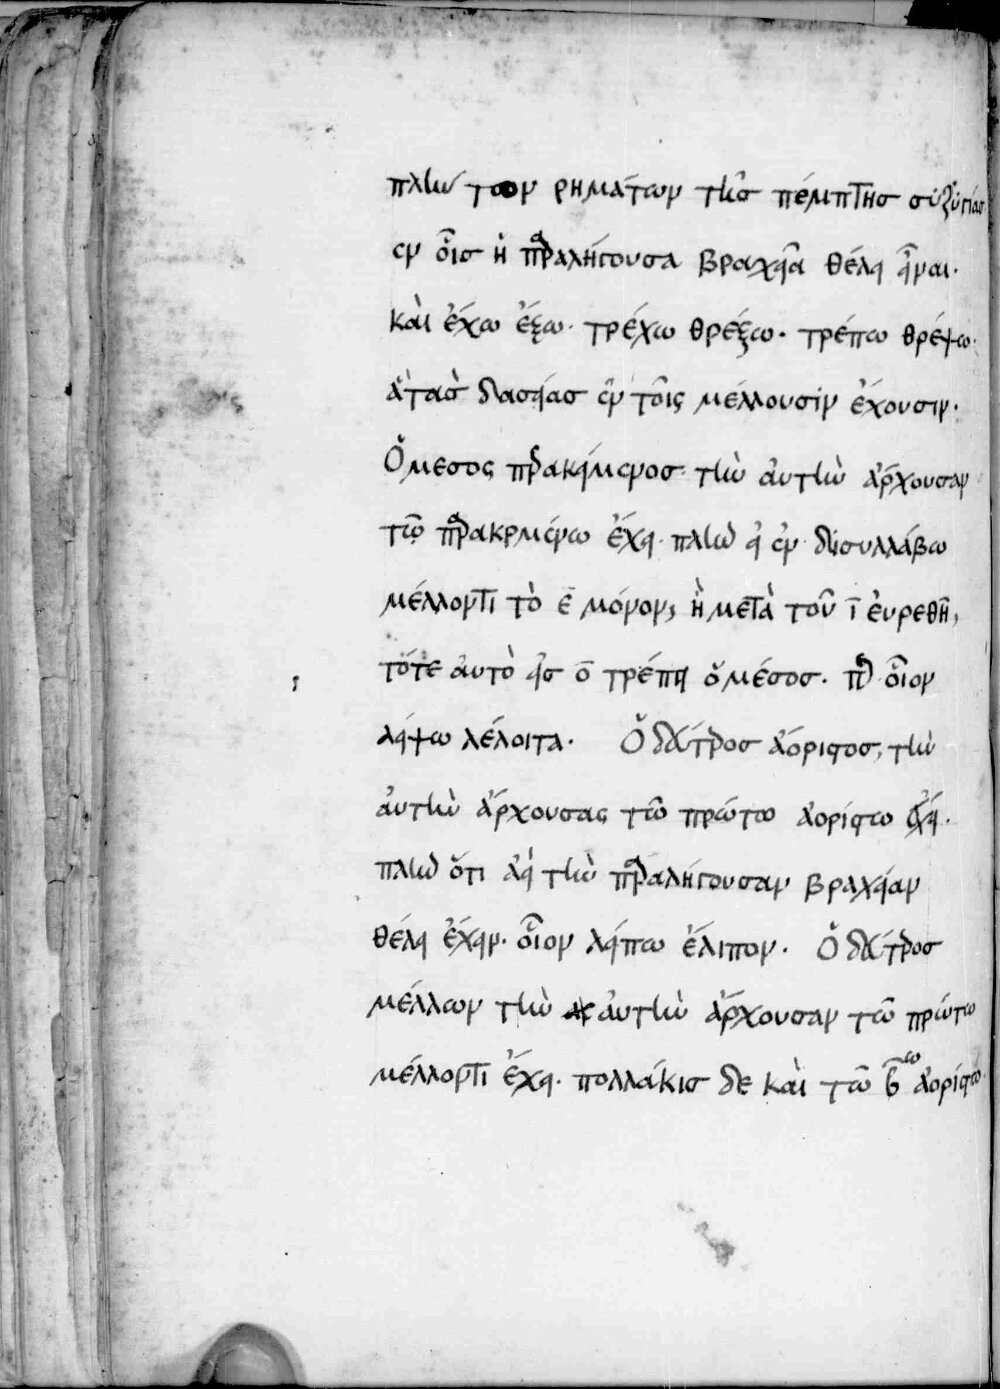 πλὴν τῶν ρημάτων τῆς πέμπτης συζυγίας
ἐν οἷς ἡ παραλήγουσα βραχεῖα θέλει εἶναι.
καὶ ἔχω ἕξω. τρέχω θρέξω. τρέπω θρέψω.
ἅτας δασείας ἐν τοῖς μέλλουσιν ἔχουσιν.
Ὁ μέσος παρακείμενος τὴν ἀυτὴν ἄρχουσαν
τῶ παρακειμένω ἔχει. πλὴν εἰ ἐν δισυλλάβω
μέλλοντι τὸ ε̄ μόνον, ἢ μετὰ τοῦ ῑ ἑυρεθῆ,
τότε ἀυτὸ εἰς ο̄ τρέπει ὁ μέσος. οἷον
λείψω λέλοιπα. Ὁ δεύτερος ἀόριστος, τὴν
ἀυτὴν ἄρχουσας τῶ πρώτω ἀορίστω ἔχει.
πλὴν ὅτι ἀεὶ τὴν παραλήγουσαν βραχεῖαν
θέλει ἔχειν. οἷον λείπω ἔλιπον. Ὁ δεύτερος
μέλλων τὴν ἀυτὴν ἄρχουσαν τῶ πρώτω
μέλλοντι ἔχει. πολλάκις δε καὶ τῶ β̄ω ἀορίστω